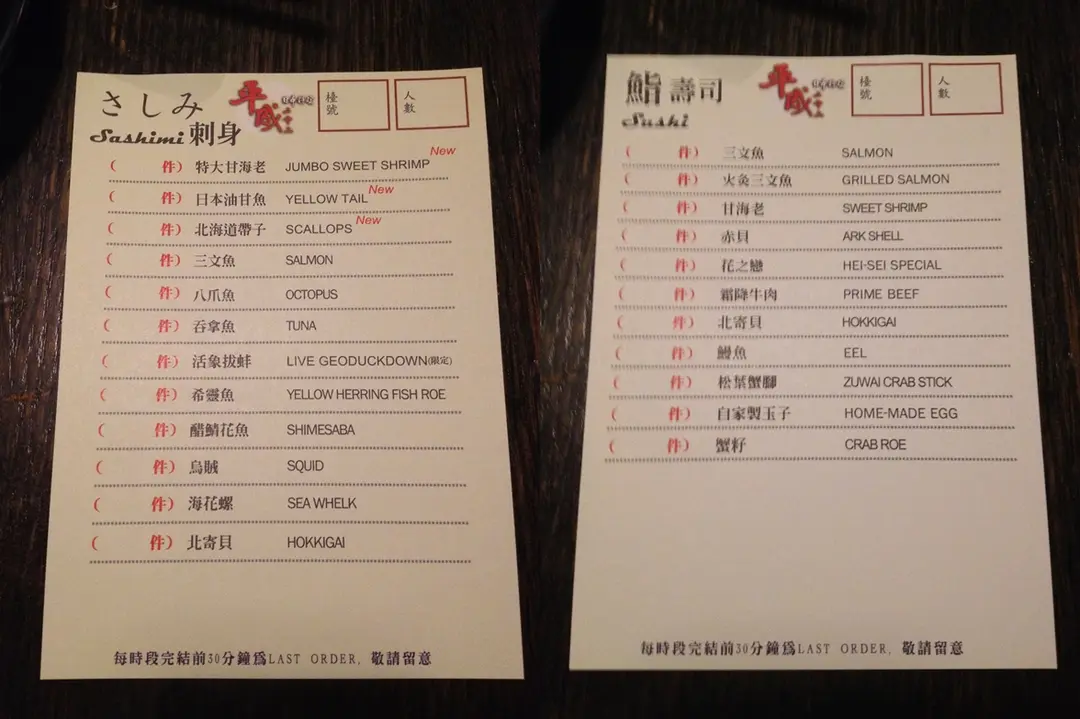 さしみ
Sashimi 刺身
平成
檯號
人數
( 件) 特大甘海老 JUMBO SWEET SHRIMP New
( 件) 日本油甘魚 YELLOW TAIL New
( 件) 北海道帶子 SCALLOPS New
( 件) 三文魚 SALMON
( 件) 八爪魚 OCTOPUS
( 件) 吞拿魚 TUNA
( 件) 活象拔蚌 LIVE GEODUCKDOWN(限定)
( 件) 希靈魚 YELLOW HERRING FISH ROE
( 件) 醋鯖花魚 SHIMESABA
( 件) 烏賊 SQUID
( 件) 海花螺 SEA WHELK
( 件) 北寄貝 HOKKIGAI
每時段完結前30分鐘爲LAST ORDER, 敬請留意
鮨 壽司
Sushi
平成
檯號
人數
( 件) 三文魚 SALMON
( 件) 火灸三文魚 GRILLED SALMON
( 件) 甘海老 SWEET SHRIMP
( 件) 赤貝 ARK SHELL
( 件) 花之戀 HEI-SEI SPECIAL
( 件) 霜降牛肉 PRIME BEEF
( 件) 北寄貝 HOKKIGAI
( 件) 鰻魚 EEL
( 件) 松葉蟹腳 ZUWAI CRAB STICK
( 件) 自家製玉子 HOME-MADE EGG
( 件) 蟹籽 CRAB ROE
每時段完結前30分鐘爲LAST ORDER, 敬請留意